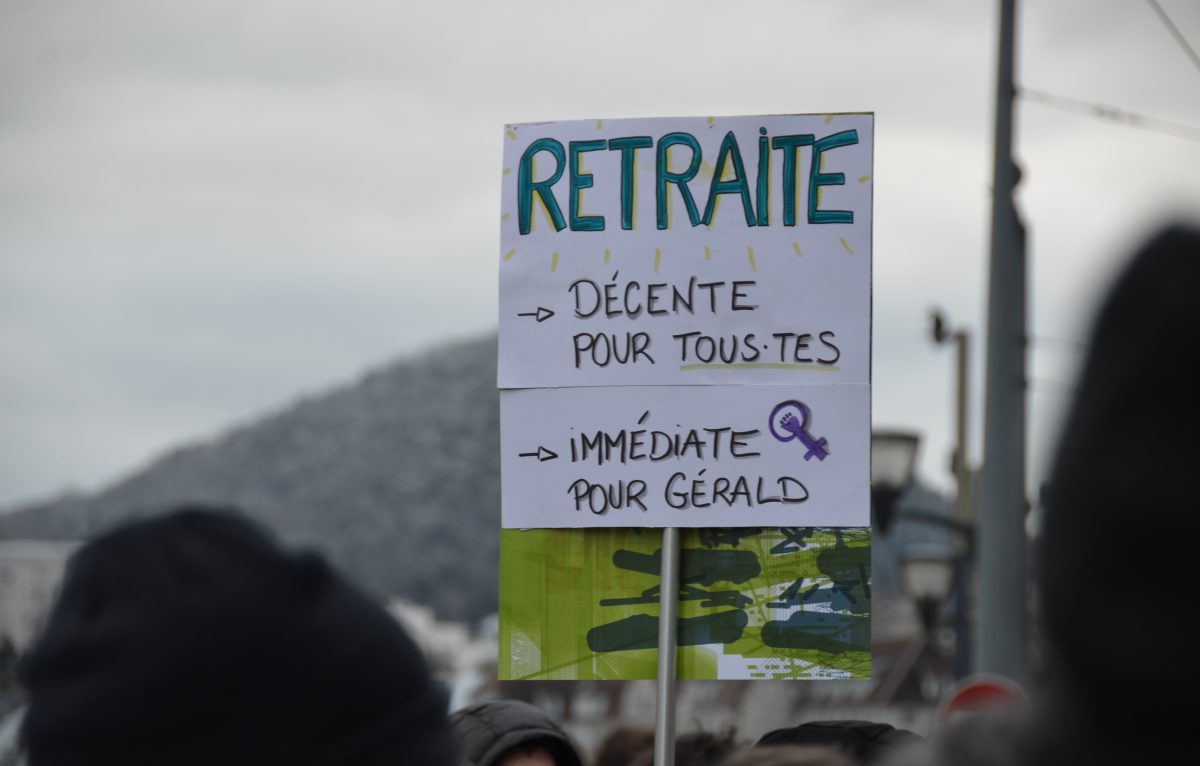 RETRAITE
→ DÉCENTE
POUR TOUS·TES
→ IMMÉDIATE
POUR GÉRALD